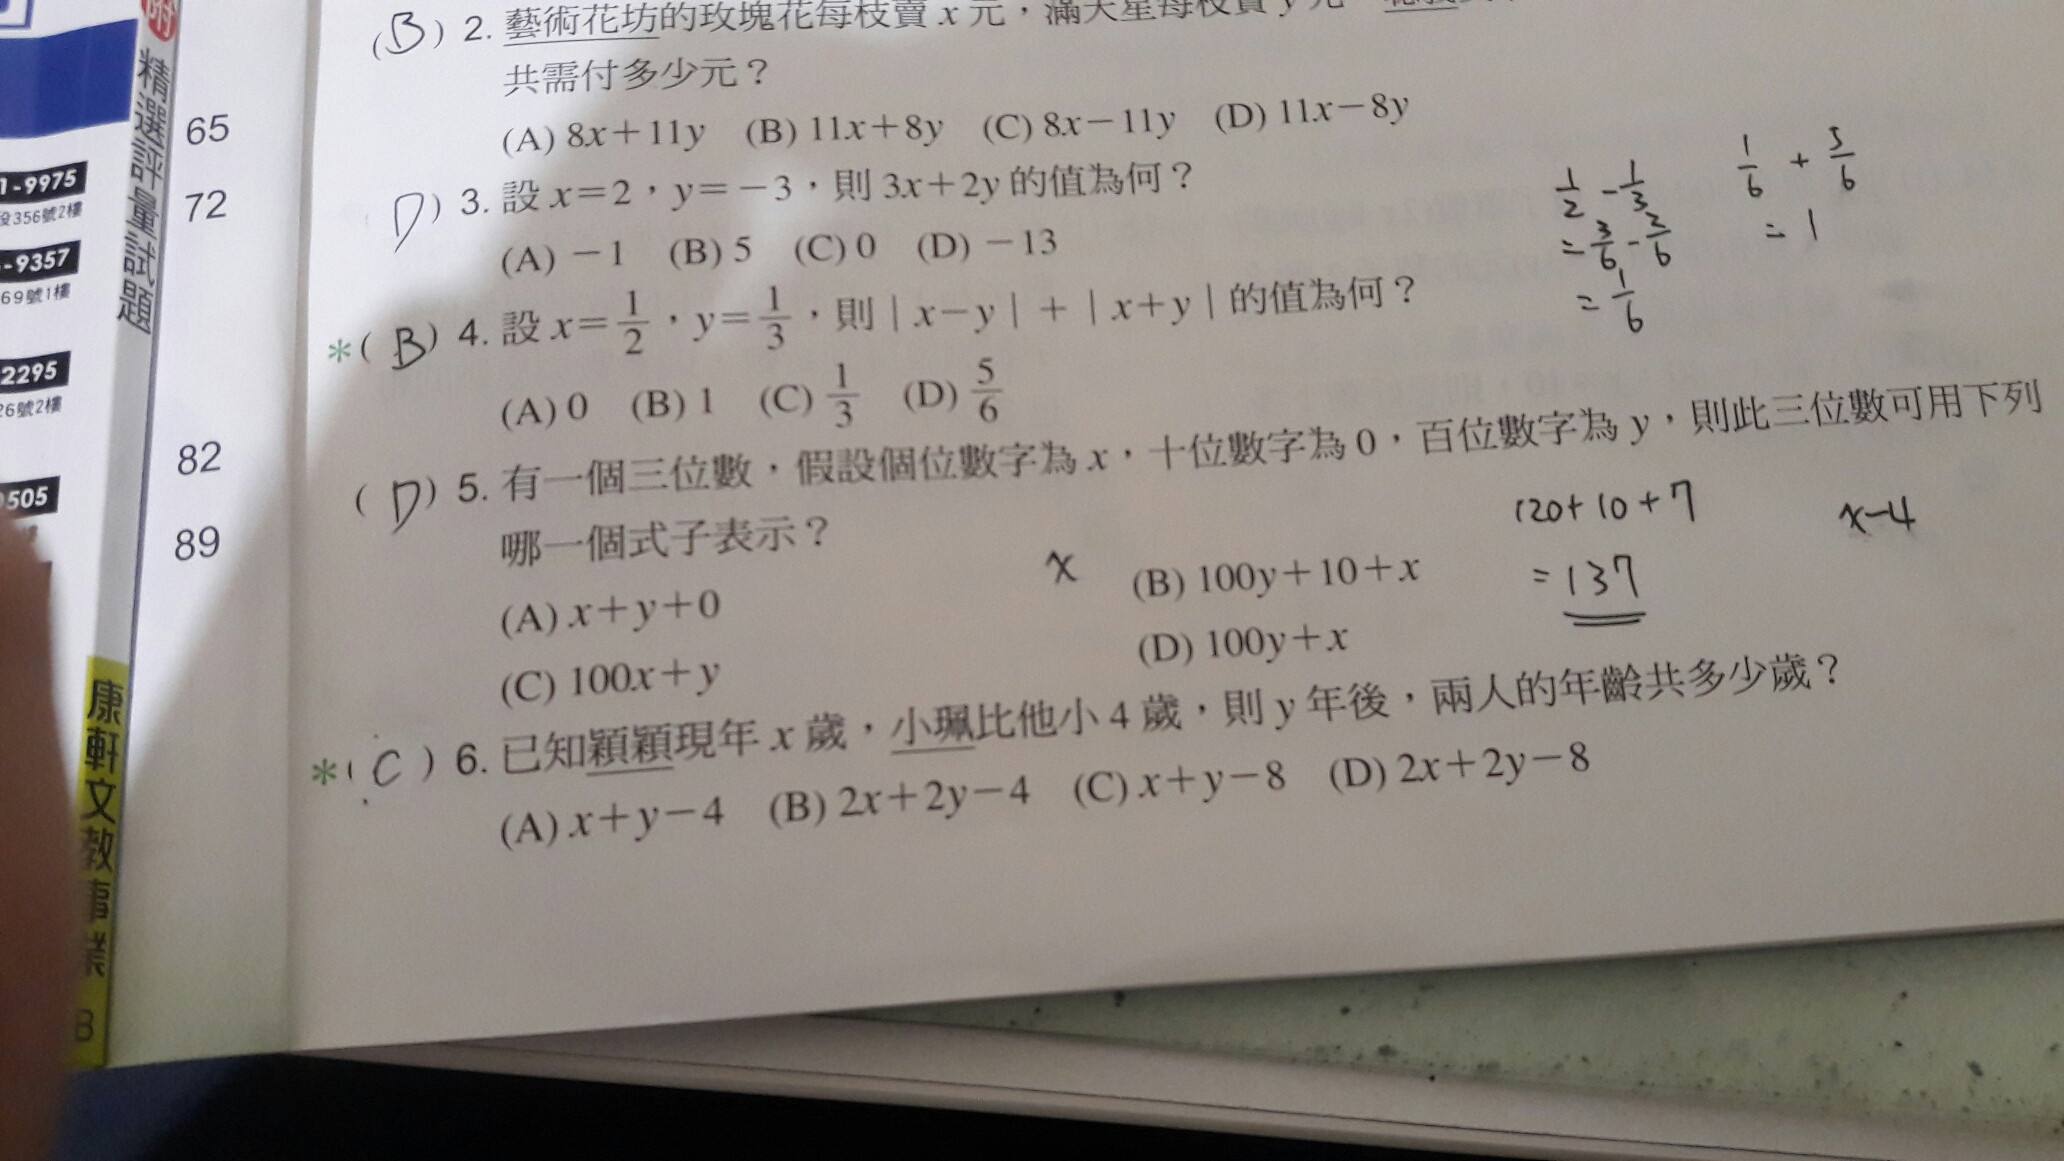 附
精選評量試題
康軒文教事業
65
72
82
89
1-9975
役356號2樓
-9357
69號1樓
2295
26號2樓
505
(B) 2. 藝術花坊的玫瑰花每枝賣 x 元，滿天星每枝賣 y 元
共需付多少元？
(A) 8x＋11y (B) 11x＋8y (C) 8x－11y (D) 11x－8y
D) 3. 設 x＝2，y＝－3，則 3x＋2y 的值為何？
(A) －1 (B) 5 (C) 0 (D) －13
*(B) 4. 設 x＝1/2，y＝1/3，則｜x－y｜＋｜x＋y｜的值為何？
(A) 0 (B) 1 (C) 1/3 (D) 5/6
(D) 5. 有一個三位數，假設個位數字為 x，十位數字為 0，百位數字為 y，則此三位數可用下列
哪一個式子表示？
(A) x＋y＋0
(B) 100y＋10＋x
(C) 100x＋y
(D) 100y＋x
*(C) 6. 已知穎穎現年 x 歲，小珮比他小 4 歲，則 y 年後，兩人的年齡共多少歲？
(A) x＋y－4 (B) 2x＋2y－4 (C) x＋y－8 (D) 2x＋2y－8
1/2 - 1/3
= 3/6 - 2/6
= 1/6
1/6 + 5/6
= 1
x
120+10+7
= 137
x-4